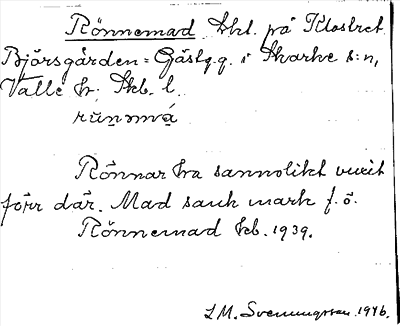 Rönnemad åkt. på Klostret
Björsgården = Gästg.g. i Skarke s:n,
Valle hr. Skb. l.
rün̥əmvá
Rönnar ha sannolikt vuxit
förr där. Mad sank mark f. ö.
Rönnemad kb. 1939.
L M. Svenungsson. 1946.